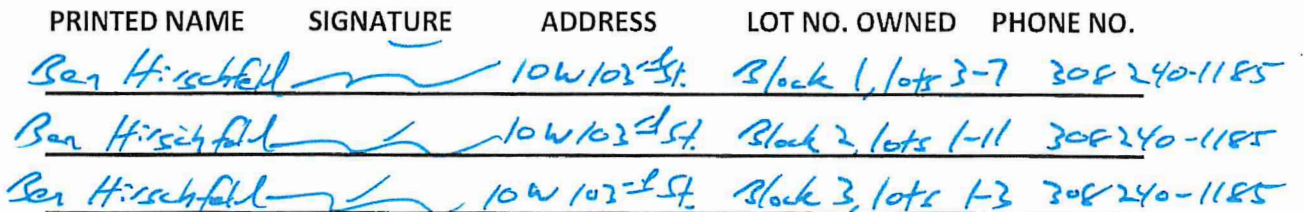 PRINTED NAME SIGNATURE ADDRESS LOT NO. OWNED PHONE NO.
Ben Hirschfeld 10 W 103rd St. Block 1, lots 3-7 308 240-1185
Ben Hirschfeld 10 W 103rd St. Block 2, lots 1-11 308 240-1185
Ben Hirschfeld 10 W 103rd St. Block 3, lots 1-3 308 240-1185